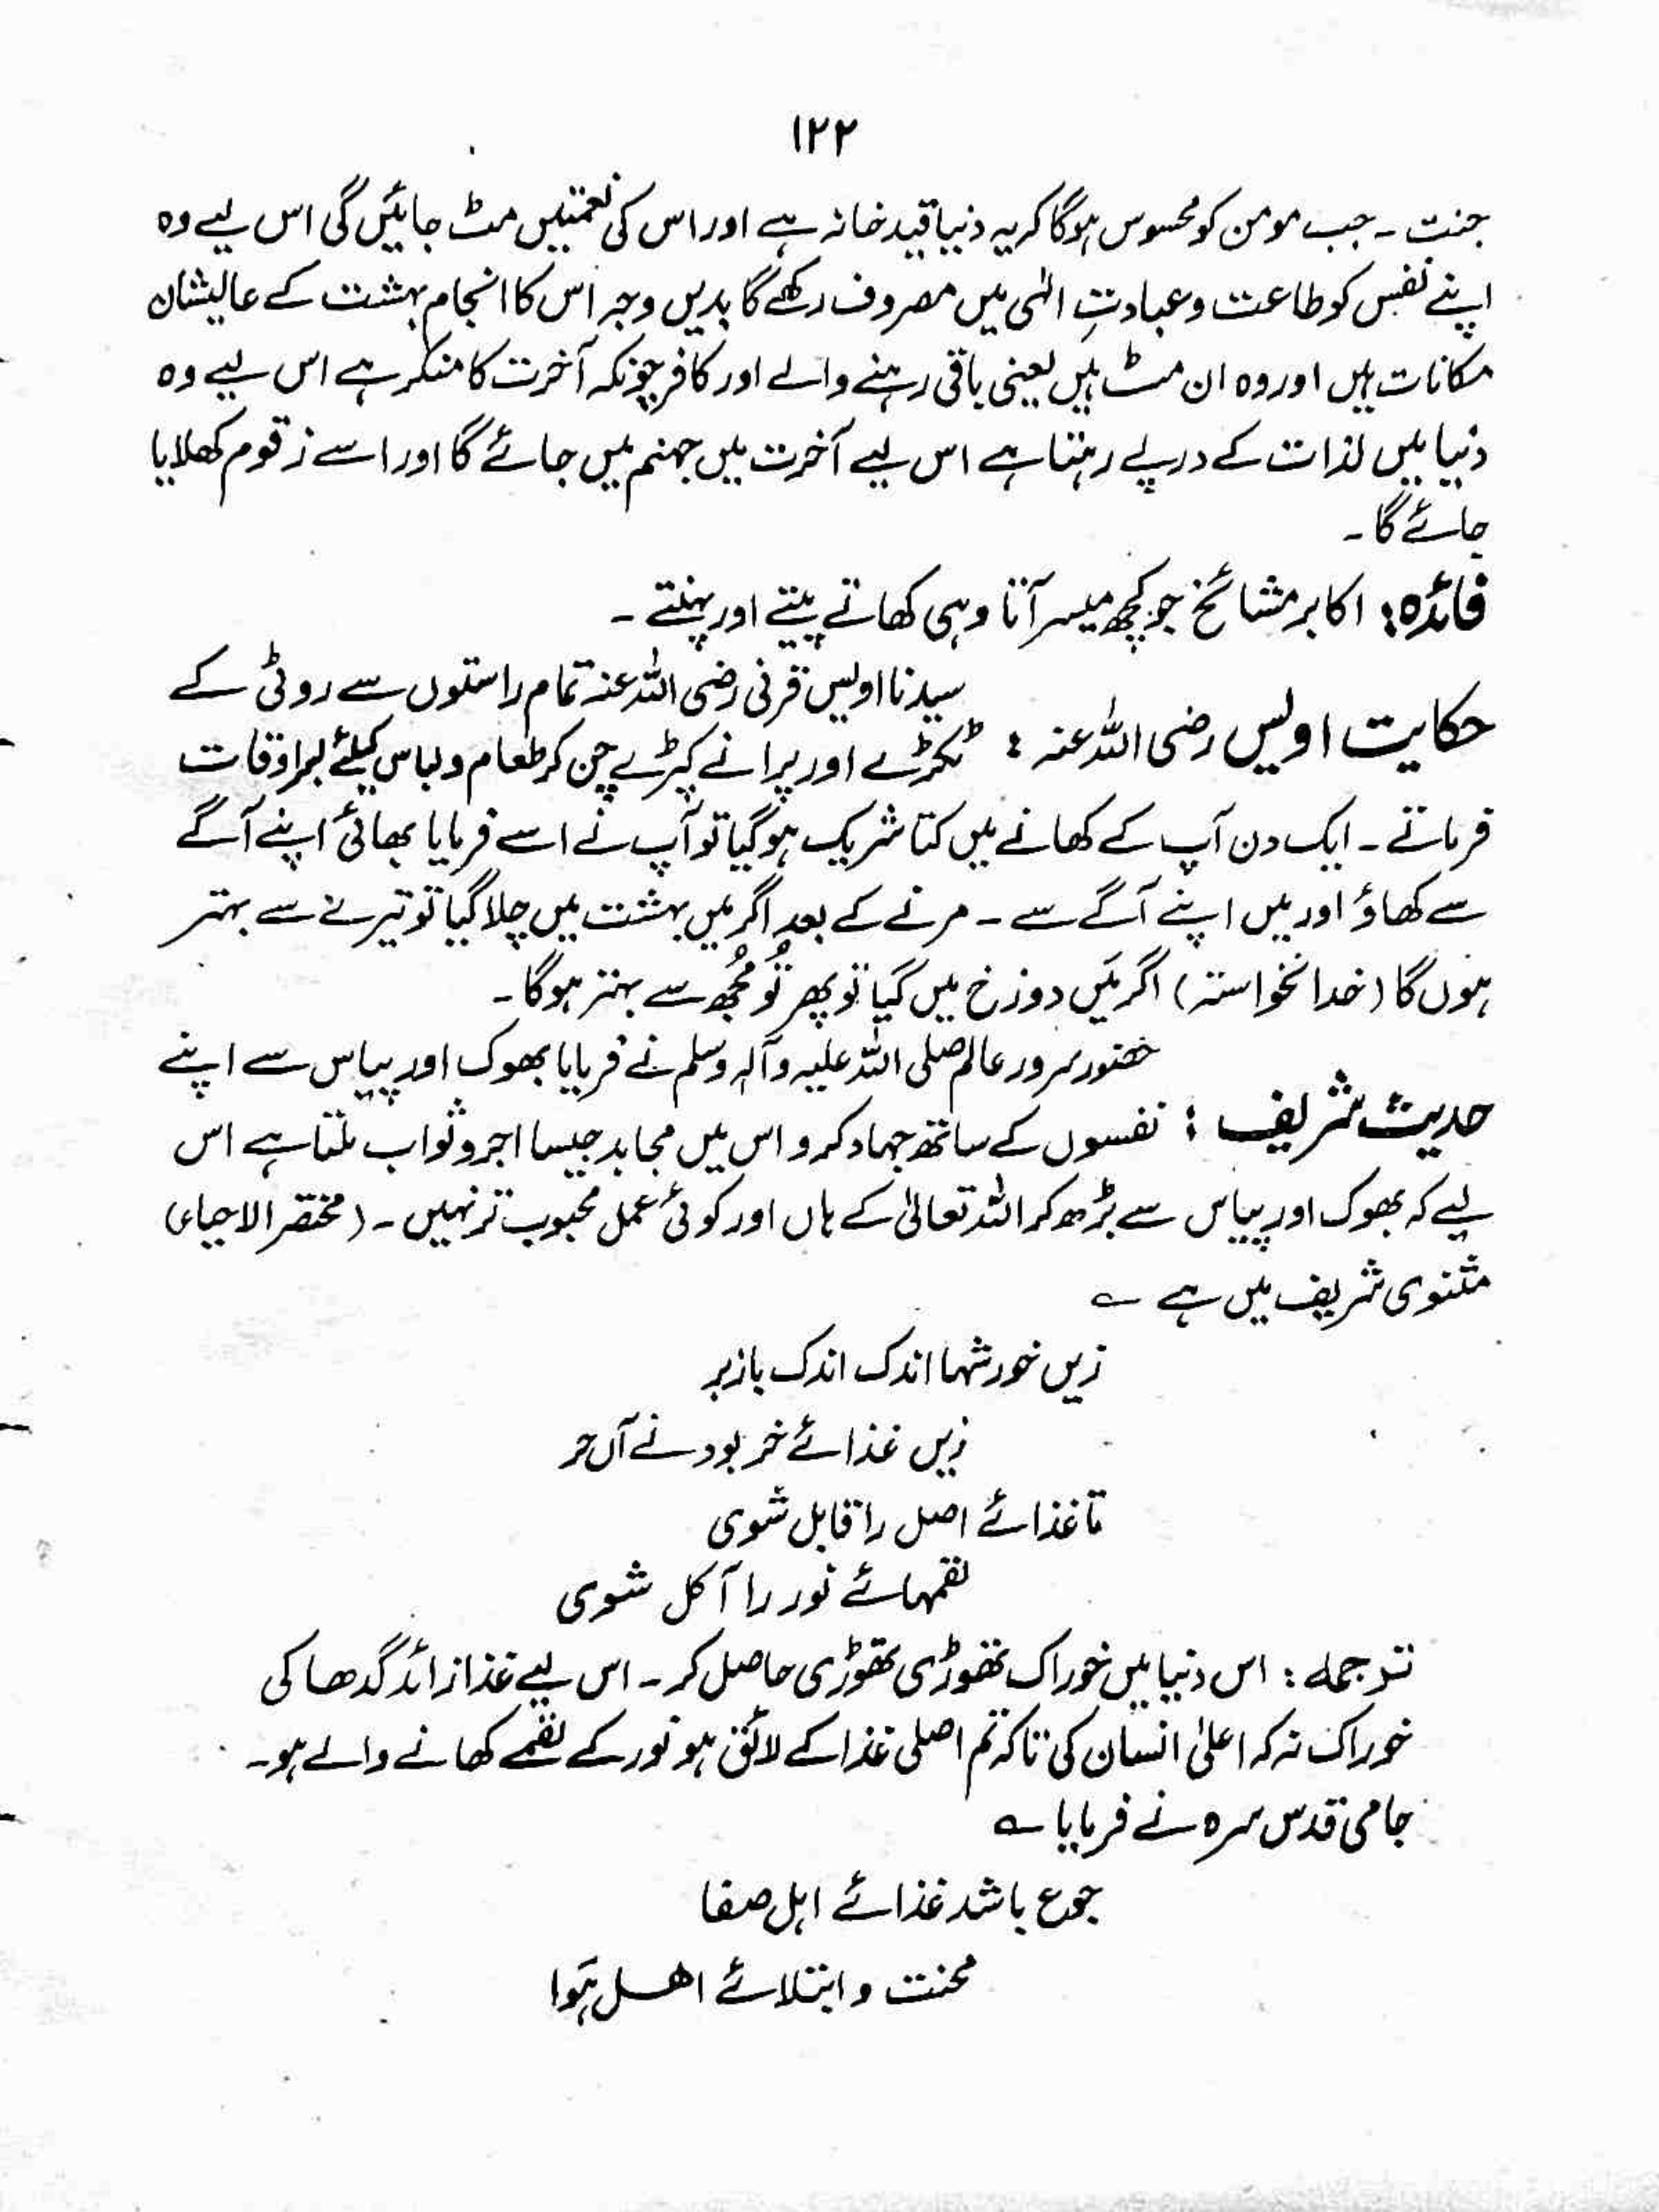 ۱۲۲
جنت ۔ جب مومن کو محسوس ہوگا کہ یہ دنیا قید خانہ ہے اور اس کی نعمتیں مٹ جائیں گی اس لیے وہ
اپنے نفس کو طاعت و عبادتِ الٰہی میں مصروف رکھے گا بدیں وجہ اس کا انجام بہشت کے عالیشان
مکانات ہیں اور وہ ان مٹ ہیں یعنی باقی رہنے والے اور کافر چونکہ آخرت کا منکر ہے اس لیے وہ
دنیا میں لذات کے درپے رہتا ہے اس لیے آخرت میں جہنم میں جائے گا اور اسے زقوم کھلایا
جائے گا ۔
فائدہ : اکابر مشائخ جو کچھ میسر آتا وہی کھاتے پیتے اور پہنتے ۔
حکایت اویس رضی اللہ عنہ : سیدنا اویس قرنی رضی اللہ عنہ تمام راستوں سے روٹی کے
ٹکڑے اور پرانے کپڑے چن کر طعام و لباس کیلئے بسراوقات
فرماتے ۔ ایک دن آپ کے کھانے میں کتا شریک ہوگیا تو آپ نے اسے فرمایا بھائی اپنے آگے
سے کھاؤ اور میں اپنے آگے سے ۔ مرنے کے بعد اگر میں بہشت میں چلا گیا تو تیرے سے بہتر
ہوں گا (خدانخواستہ) اگر میَں دوزخ میں گیا تو پھر تُو مُجھ سے بہتر ہوگا ۔
حدیث شریف : حضور سرور عالم صلی اللہ علیہ وآلہ وسلم نے فرمایا بھوک اور پیاس سے اپنے
نفسوں کے ساتھ جہاد کرو اس میں مجاہد جیسا اجر و ثواب ملتا ہے اس
لیے کہ بھوک اور پیاس سے بڑھ کر اللہ تعالیٰ کے ہاں اور کوئی عمل محبوب تر نہیں ۔ (مختصر الاحیاء)
مثنوی شریف میں ہے ؎
زیں خورشہا اندک اندک بازبر
زیں غذائے خر بود نے آں حر
تا غذائے اصل را قابل شوی
لقمہائے نور را آکل شوی
ترجمہ : اس دنیا میں خوراک تھوڑی تھوڑی حاصل کر ۔ اس لیے غذا زائد گدھا کی
خوراک نہ کہ اعلیٰ انسان کی تاکہ تم اصلی غذا کے لائق ہو نور کے لقمے کھانے والے ہو ۔
جامی قدس سرہ نے فرمایا ؎
جوع باشد غذائے اہل صفا
محنت و ابتلائے اھل ہَوا